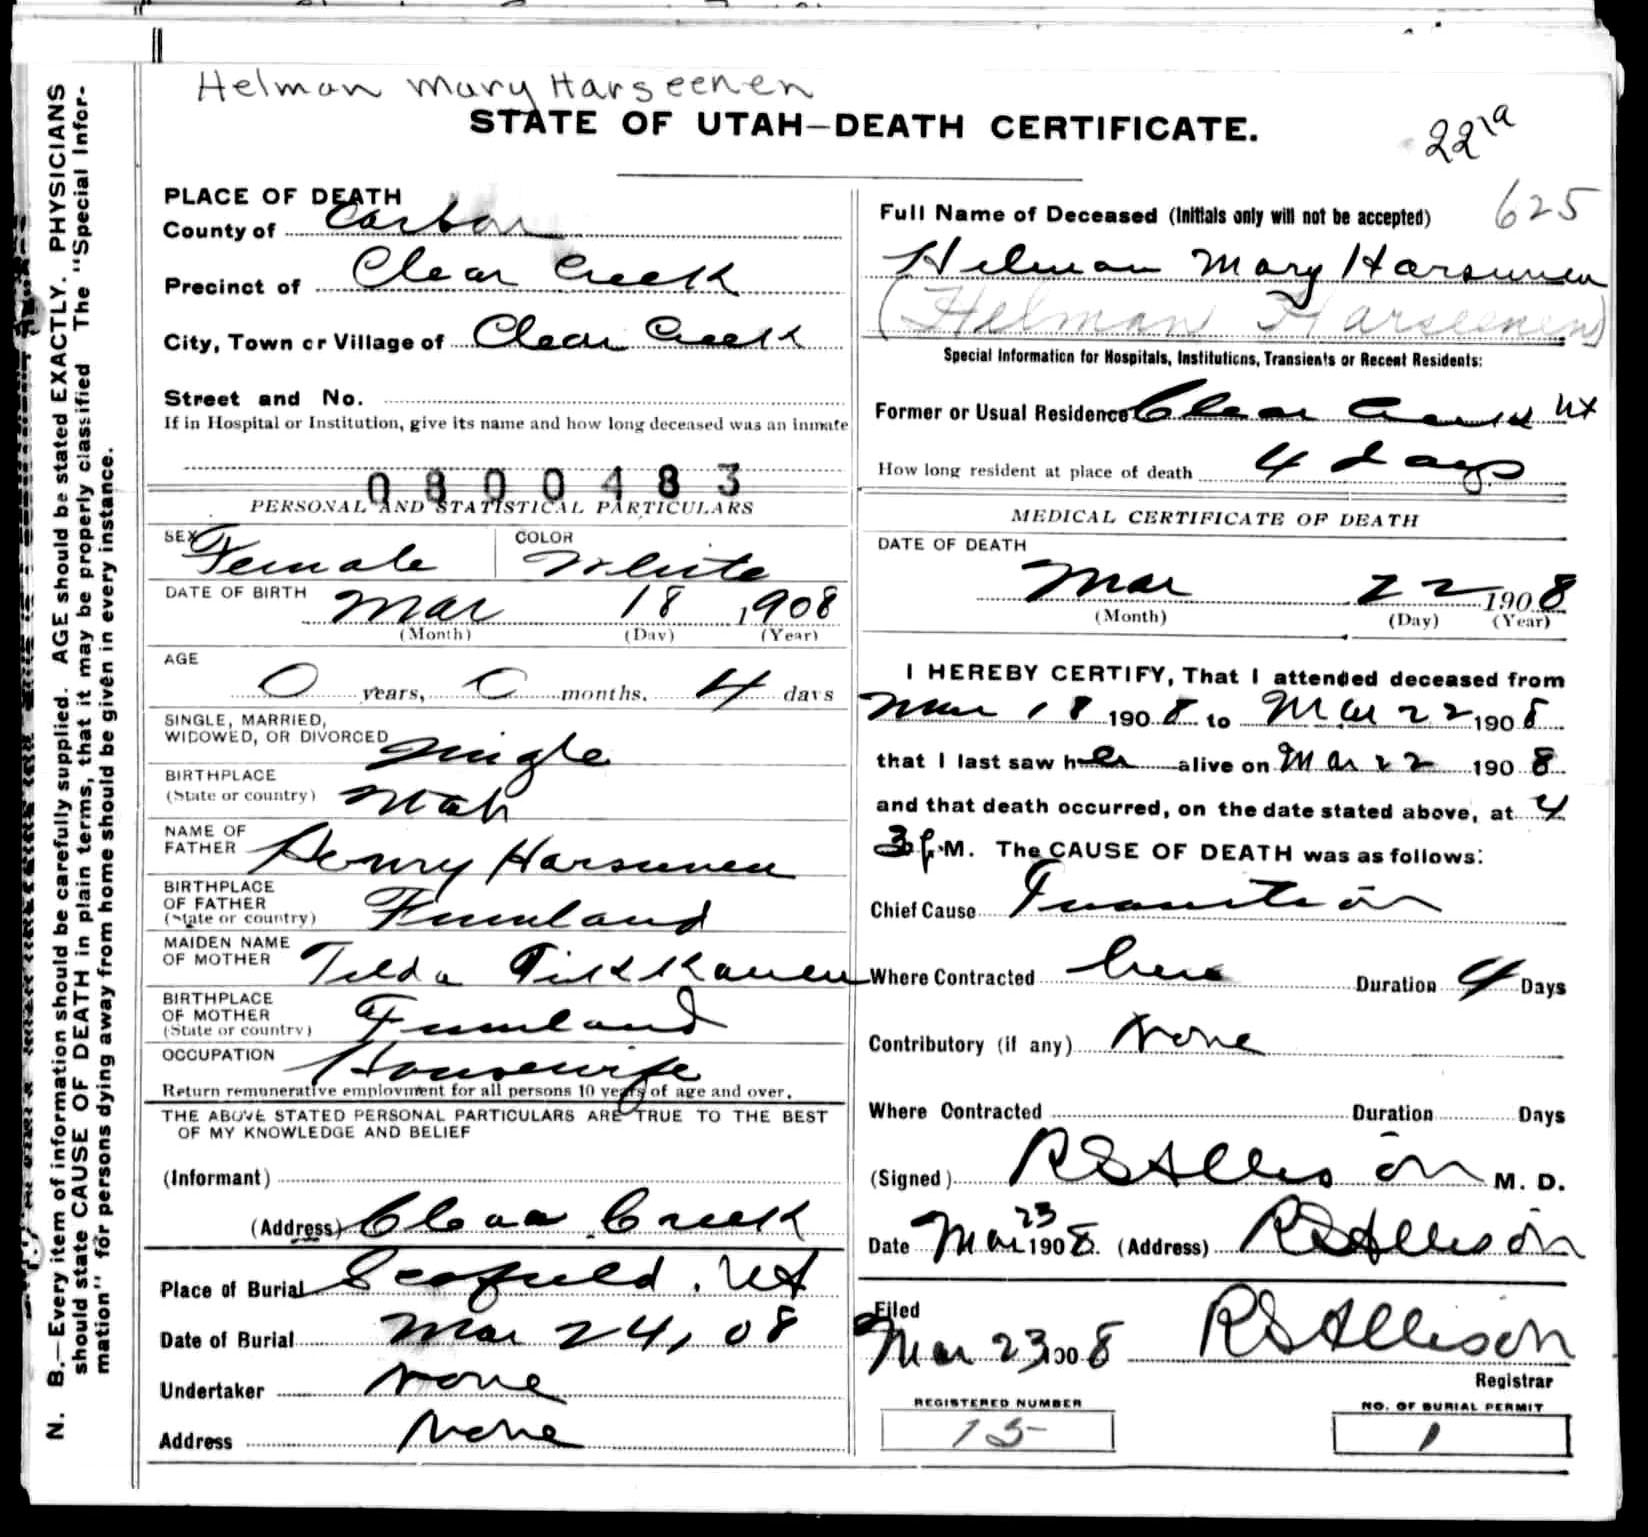 Helman Mary Harseenen
STATE OF UTAH—DEATH CERTIFICATE.
22 1a
625
N. B.—Every item of information should be carefully supplied. AGE should be stated EXACTLY. PHYSICIANS
should state CAUSE OF DEATH in plain terms, that it may be properly classified The "Special Infor-
mation" for persons dying away from home should be given in every instance.
PLACE OF DEATH
County of Carbon
Precinct of Clear Creek
City, Town or Village of Clear Creek
Street and No.
If in Hospital or Institution, give its name and how long deceased was an inmate
0800483
PERSONAL AND STATISTICAL PARTICULARS
SEX Female COLOR White
DATE OF BIRTH Mar 18 1908
(Month) (Day) (Year)
AGE
0 years, 0 months, 4 days
SINGLE, MARRIED,
WIDOWED, OR DIVORCED Single
BIRTHPLACE
(State or country) Utah
NAME OF
FATHER Henry Harsunen
BIRTHPLACE
OF FATHER
(State or country) Finnland
MAIDEN NAME
OF MOTHER Tilda Tikkanen
BIRTHPLACE
OF MOTHER
(State or country) Finnland
OCCUPATION Housewife
Return remunerative employment for all persons 10 years of age and over.
THE ABOVE STATED PERSONAL PARTICULARS ARE TRUE TO THE BEST
OF MY KNOWLEDGE AND BELIEF
(Informant)
(Address) Clear Creek
Place of Burial Scofield, Ut
Date of Burial Mar 24, 08
Undertaker None
Address None
Full Name of Deceased (Initials only will not be accepted)
Helman Mary Harsunen
(Helman Harseenen)
Special Information for Hospitals, Institutions, Transients or Recent Residents:
Former or Usual Residence Clear Creek Ut
How long resident at place of death 4 days
MEDICAL CERTIFICATE OF DEATH
DATE OF DEATH
Mar 22 1908
(Month) (Day) (Year)
I HEREBY CERTIFY, That I attended deceased from
Mar 18 1908 to Mar 22 1908
that I last saw her alive on Mar 22 1908
and that death occurred, on the date stated above, at 4
3 P. M. The CAUSE OF DEATH was as follows:
Chief Cause Inanition
Where Contracted here Duration 4 Days
Contributory (if any) None
Where Contracted Duration Days
(Signed) RS Allison M. D.
Date Mar 23 1908. (Address) RS Allison
Filed
Mar 23 1908 RS Allison
Registrar
REGISTERED NUMBER
15
NO. OF BURIAL PERMIT
1